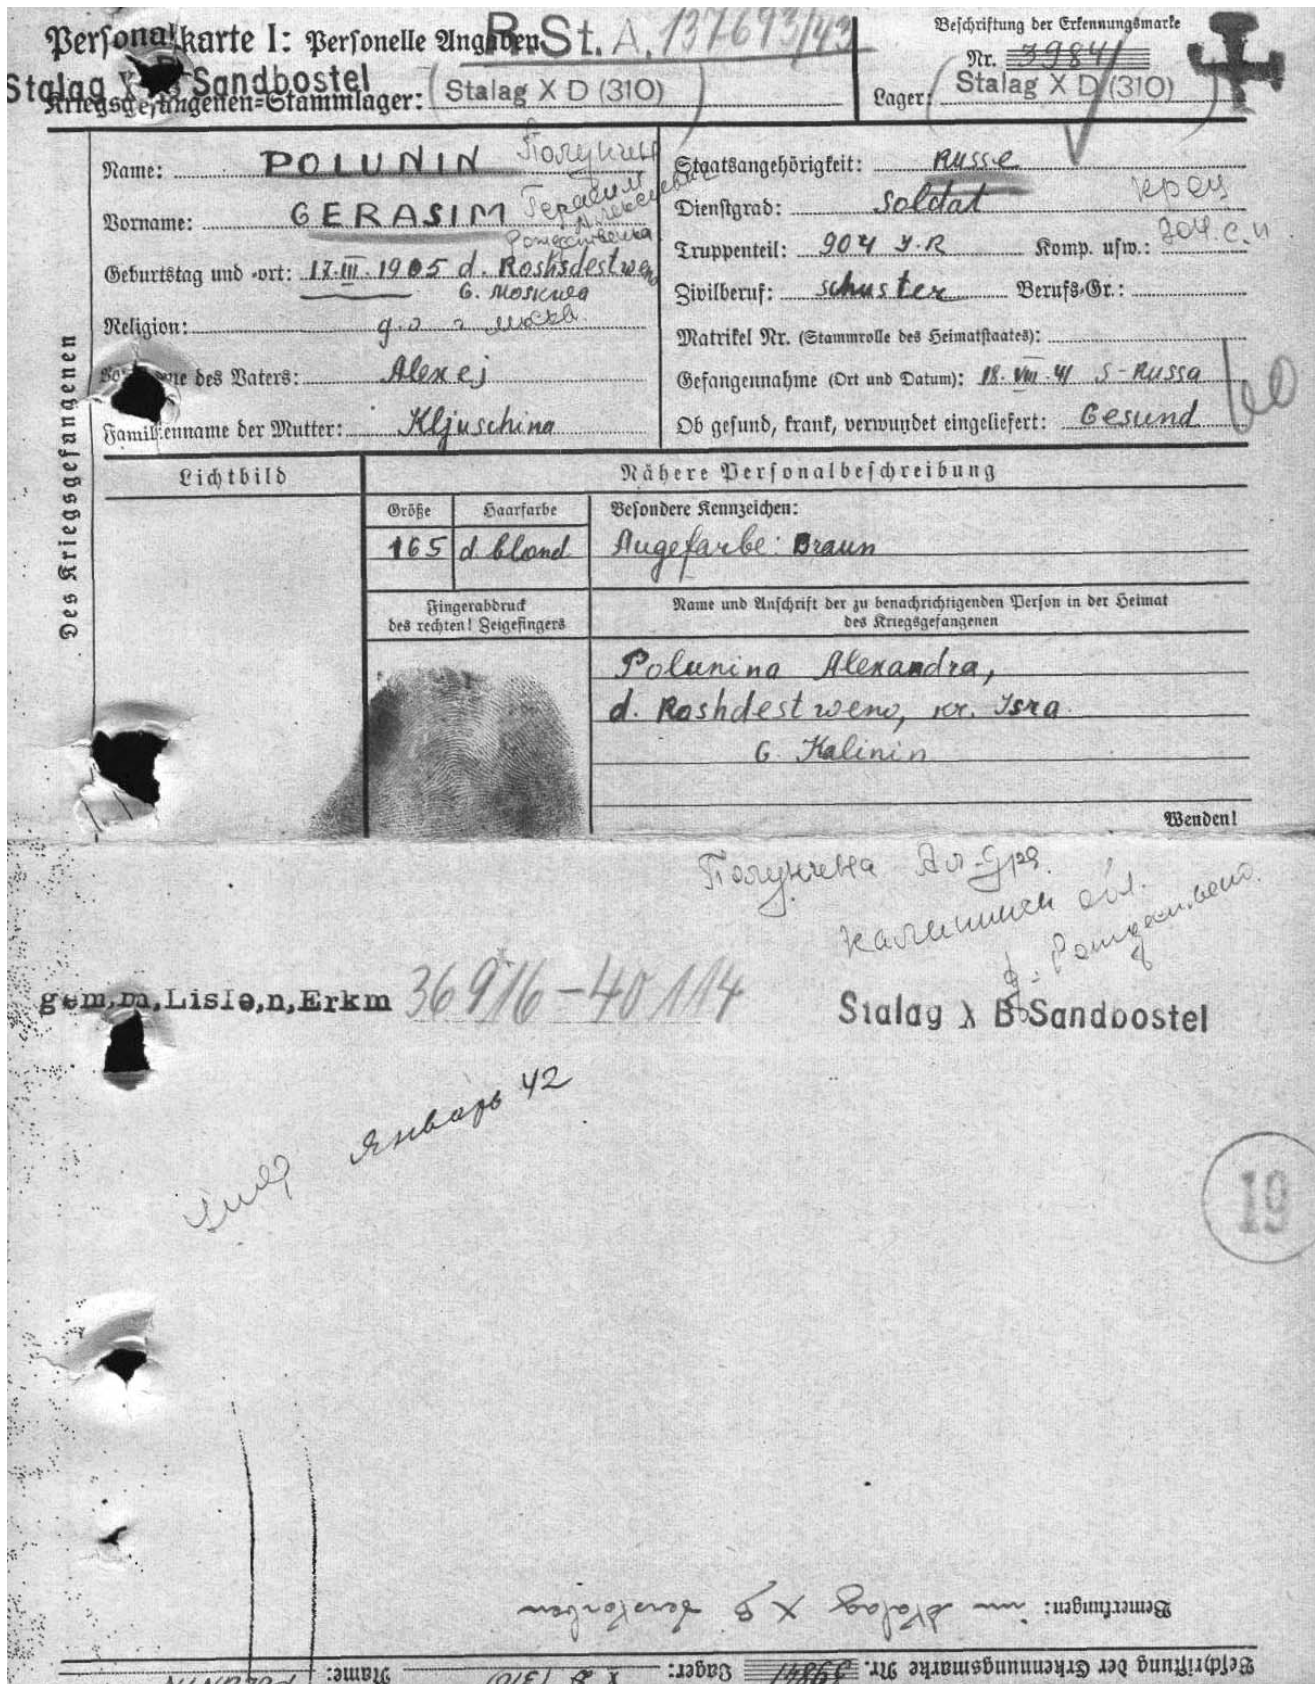 Personalkarte I: Personelle Angaben R.St.A. 137693/43
Beschriftung der Erkennungsmarke
Nr. 39841
Stalag X B Sandbostel
Kriegsgefangenen-Stammlager: Stalag X D (310)
Lager: Stalag X D (310)
Des Kriegsgefangenen
Name: POLUNIN Полунин
Vorname: GERASIM Герасим Алексеевич
Geburtstag und -ort: 17.III.1905 d. Roshdestweno
G. Moskwa
Religion:
Vorname des Vaters: Alexej
Familienname der Mutter: Kljuschina
Staatsangehörigkeit: Russe
Dienstgrad: Soldat
Truppenteil: 904 J.R Komp. usw.: 904 с.п.
Zivilberuf: Schuster Berufs-Gr.:
Matrikel Nr. (Stammrolle des Heimatstaates):
Gefangennahme (Ort und Datum): 18.VIII.41 S-Russa
Ob gesund, krank, verwundet eingeliefert: Gesund
Lichtbild
Nähere Personalbeschreibung
Größe Haarfarbe Besondere Kennzeichen:
165 d. blond Augefarbe: Braun
Fingerabdruck
des rechten! Zeigefingers
Name und Anschrift der zu benachrichtigenden Person in der Heimat
des Kriegsgefangenen
Polunina Alexandra,
d. Roshdestweno, Isra
G. Kalinin
Wenden!
Полунина Ал-дра
Калинин обл.
gem.m,Lisle,n,Erkm 36916-40114
Stalag X B Sandbostel
Январь 42
19
Bemerkungen: im Stalag X B verstorben
Beschriftung der Erkennungsmarke Nr. 39841 Lager: X D (310) Name: POLUNIN